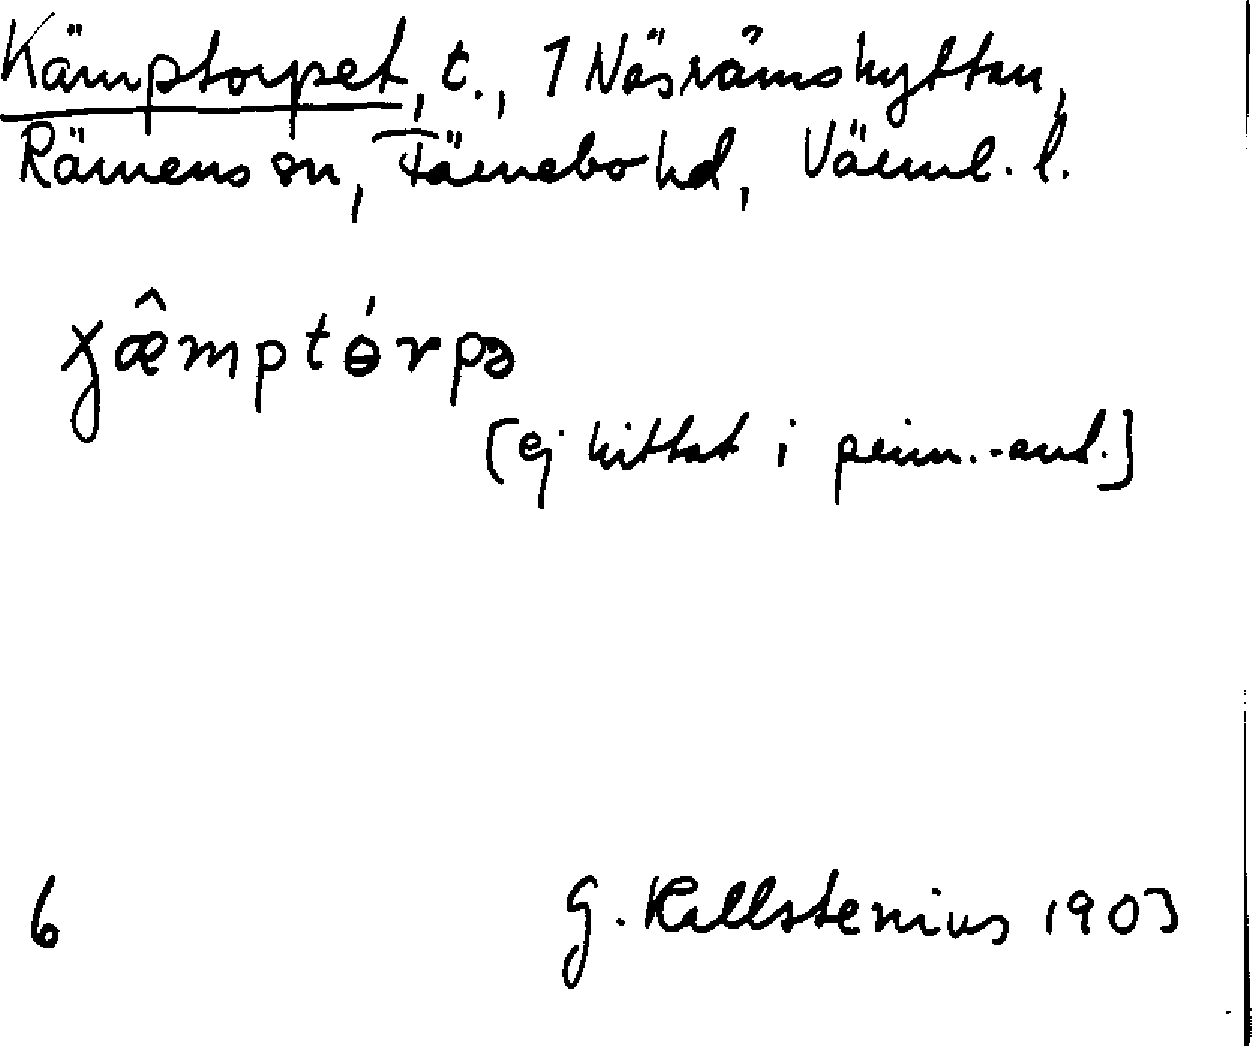 Kämptorpet, t., 1 Näsrämshyttan,
Rämens sn, Färnebo hd, Värml. l.
χæ̂mptórpə
[ej hittat i prim.-uppt.]
6
G. Kallstenius 1903